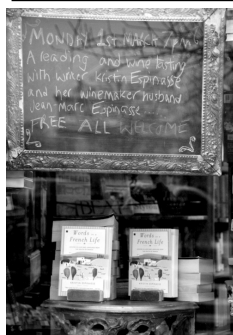 MONDAY 1ST MARCH 7PM!
A reading and wine tasting
with writer Kristin Espinasse
and her winemaker husband
Jean-Marc Espinasse
FREE ALL WELCOME
Words in a
French Life
Words in a
French Life